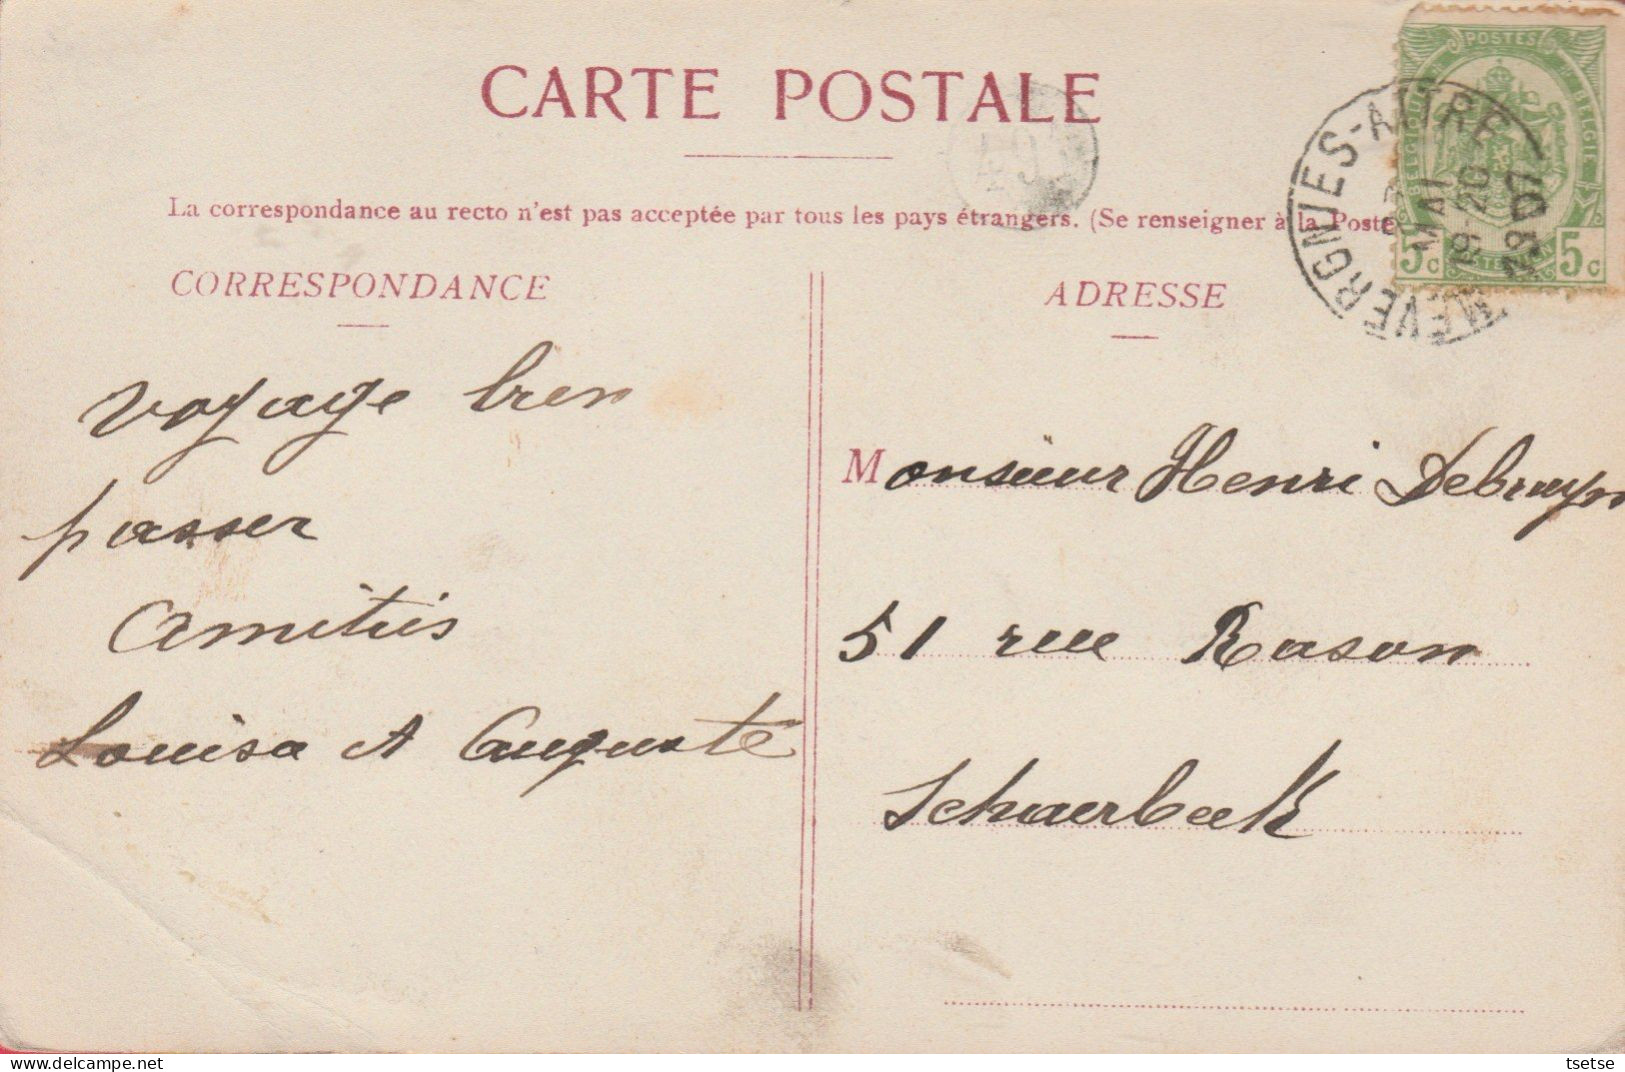 CARTE POSTALE
La correspondance au recto n'est pas acceptée par tous les pays étrangers. (Se renseigner à la Poste
CORRESPONDANCE
voyage bien
passer
Amitiés
Louisa et Auguste
ADRESSE
Monsieur Henri Debruyn
51 rue Rasson
Schaerbeek
POSTES
BELGIQUE
BELGIE
5c 5c
WEVERCNUES-ATTRE
MAI
19-20
1907
493
tsetse